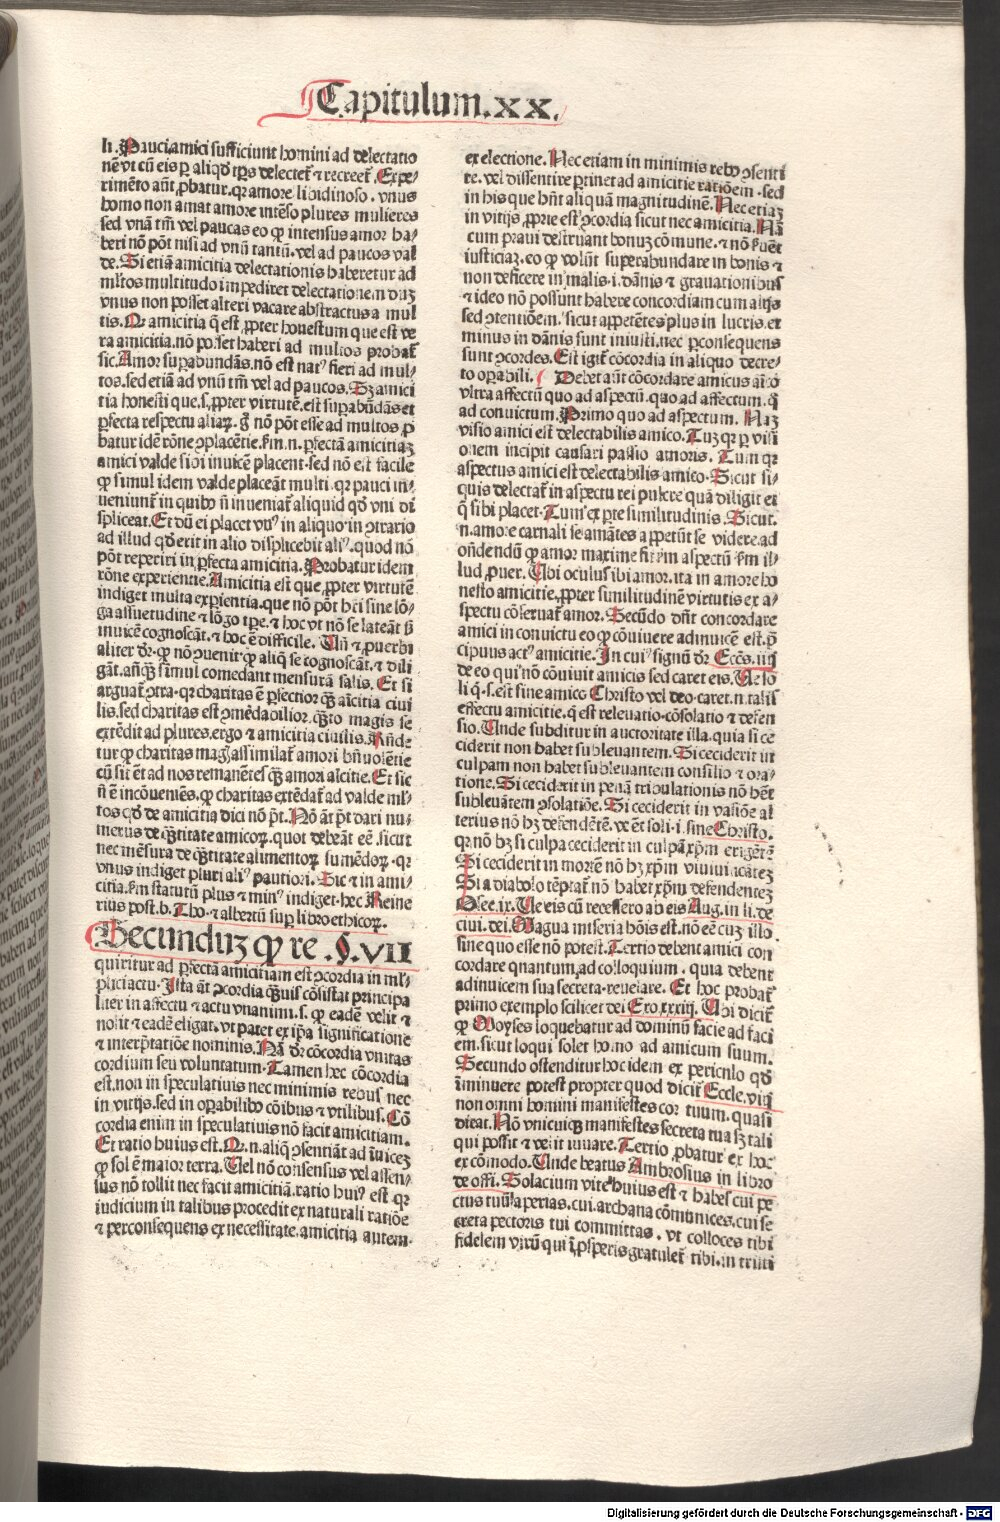 Capitulum.XX.
li. Pauci amici sufficiunt homini ad delectatio
nē vt cū eis ꝑ aliqd̄ tꝑs delectet̄ ⁊ recreet̄. Expe⸗
rimēto aūt ꝓbatur. qꝛ amore libidinoso. vnus
homo non amat amore intēso plures mulieres
sed vnā tm̄ vel paucas eo ꝙ intensus amor ha⸗
beri nō pōt nisi ad vnū tantū. vel ad paucos val
de. Si etiā amicitia delectationis haberetur ad
ml̄tos multitudo impediret delectationem dūꝫ
vnus non posset alteri vacare abstractus a mul
tis. Qꝛ amicitia q̄ est ꝓpter honestum que est ve
ra amicitia. nō posset haberi ad multos probat̄
sic. Amor suꝑabundās. nō est natꝰ fieri ad mul⸗
tos. sed etiā ad vnū tm̄ vel ad paucos. Sꝫ amici
tia honesti que. s. ꝓpter virtutē. est suꝑabūdās et
ꝑfecta respectu aliaꝝ. gͦ nō pōt esse ad multos. ꝓ
batur idē rōne ↄplacētie. fm. n. ꝑfectā amicitiaꝫ
amici valde sibi inuicē placent. sed nō est facile
ꝙ simul idem valde placeāt multi. qꝛ pauci in⸗
ueniunt̄ in quibꝰ n̄ inueniat̄ aliquid qd̄ vni di
spliceat. Et dū ei placet vnꝰ in aliquo in ↄtrario
ad illud qd̄ erit in alio displicebit aliꝰ. quod nō
pōt reperiri in ꝑfecta amicitia. Probatur idem
rōne experientie. Amicitia est que ꝓpter virtutē
indiget multa exꝑientia. que nō pōt h̄ri sine lō⸗
ga assuetudine ⁊ lōgo tꝑe. ⁊ hoc vt nō se lateāt s̄
inuicē cognoscāt. ⁊ hoc ē difficile. Un̄ ⁊ ꝓuerbi
aliter dr̄. ꝙ nō ↄuenit ꝙ aliq̄ se cognoscāt. ⁊ dili
gāt. anq̄ꝫ simul comedant mensurā salis. Et si
arguat̄ ↄtra. qꝛ charitas ē ꝑfectior q̄ꝫ aīcitia ciui
lis. sed charitas est ↄmēdabilior. q̄ꝫto magis se
extēdit ad plures. ergo ⁊ amicitia ciuilis. Rn̄de
tur ꝙ charitas magꝭ assimilat̄ amori bn̄uolētie
cū sit ēt ad nos remanētes q̄ꝫ amori alcitie. Et sic
si ē incōueniēs. ꝙ charitas extēdat̄ ad valde ml̄⸗
tos qd̄ de amicitia dici nō pt̄. Nō āt pt̄ dari nu⸗
merus de q̄ꝫtitate amicoꝝ. quot debeāt eē. sicut
nec mēsura de q̄ꝫtitate alimentoꝝ sumēdoꝝ. qꝛ
vnus indiget pluri aliꝰ pautiori. Sic ⁊ in ami⸗
citia. fm statutū plus ⁊ minꝰ indiget. hec Reine
rius post. b. Tho. ⁊ albertū suꝑ libro ethicoꝝ.
Secunduꝫ ꝙ re .§.VII
quiritur ad ꝑfectā amicitiam est ↄcordia in ml̄⸗
plici actu. Ista āt ↄcordia q̄ꝫuis cōsistat principa
liter in affectu ⁊ actu vnanimi. s. ꝙ eadē velit ⁊
nolit ⁊ eadē eligat. vt patet ex ip̄a significatione
⁊ interp̄tatiōe nominis. Nā dr̄ cōcordia vnitas
cordium seu voluntatum. Tamen hec cōcordia
est. non in speculatiuis nec minimis rebus nec
in vitijs. sed in oꝑabilibꝰ cōibus ⁊ vtilibus. Cō
cordia enim in speculatiuis nō facit amicitiam.
Et ratio huius est. Qꝛ. n. aliq̄ ↄsentiāt ad īuicez
ꝙ sol ē maior terra. Uel nō consensus vel assen⸗
sus nō tollit nec facit amicitiā. ratio huiꝰ est qꝛ
iudicium in talibus procedit ex naturali ratiōe
⁊ perconsequens ex necessitate. amicitia autem.
ex electione. Nec etiam in minimis rebꝰ ↄsenti
re. vel dissentire ꝑtinet ad amicitie ratiōem. sed
in his que hn̄t aliquā magnitudinē. Nec etiaꝫ
in vitijs. ꝓprie est ↄcordia sicut nec amicitia. Nā
cum praui destruant bonuꝫ cōmune. ⁊ nō ẜuēt
iusticiaꝫ. eo ꝙ volūt superabundare in bonis ⁊
non deficere in malis. i. dānis ⁊ grauationibus
⁊ ideo nō possunt habere concordiam cum alijs
sed ↄtentiōem. sicut appetētes plus in lucris. et
minus in dānis sunt iniusti. nec ꝑconsequens
sunt ↄcordes. Est igit̄ cōcordia in aliquo decre⸗
to oꝑabili. Debet aūt cōcordare amicus aīcō
vltra affectū quo ad aspectū. quo ad affectum. q̄
ad conuictum. Primo quo ad aspectum. Naꝫ
visio amici est delectabilis amico. Tuꝫ qꝛ ꝑ visi
onem incipit causari passio amoris. Tum qꝛ
aspectus amici est delectabilis amico. Sicut si⸗
quis delectat̄ in aspectu rei pulcre quā diligit et
q̄ sibi placet. Tum ex ꝑte similitudinis. Sicut.
n. amore carnali se amātes appetūt se videre. ad
on̄dendū ꝙ amor maxime fit ꝑ in aspectū fm il⸗
lud ꝓuer. Ubi oculus ibi amor. ita in amore ho
nesto amicitie. ꝓpter similitudinē virtutis ex a⸗
spectu cōseruat̄ amor. Secūdo dn̄t concordare
amici in conuictu eo ꝙ cōuiuere adinuicē est. p̄
cipuus actꝰ amicitie. In cuiꝰ signū dr̄ Eccs̄. iiij
de eo qui nō cōuiuit amicis sed caret eis. Ue so
li q. s. est sine amico Christo vel deo. caret. n. talis
effectu amicitie. q̄ est releuatio ↄsolatio ⁊ defen
sio. Unde subditur in auctoritate illa. quia si ce
ciderit non habet subleuantem. Si ceciderit in
culpam non habet subleuantem consilio ⁊ ora⸗
tione. Si ceciderit in penā tribulationis nō hēt
subleuātem ↄsolatiōe. Si ceciderit in vasiōe al
terius nō hꝫ defendētē. ve ēt soli. i. sine Christo.
qꝛ nō hꝫ si culpa ceciderit in culpā xp̄m erigētē
Si ceciderit in mortē nō hꝫ xp̄m viuificatēꝫ
Si a diabolo tēptat̄ nō habet xp̄m defendentez
Osee. ix. Ue eis cū recessero ab eis Aug. in li. de
ciui. dei. Magna miseria hōis est. nō eē cuꝫ illo.
sine quo esse nō potest. Tertio debent amici con
cordare quantum ad colloquium. quia debent
adinuicem sua secreta reuelare. Et hoc probat̄
primo exemplo scilicet dei Exo. xxxiij. Ubi dicit̄
ꝙ Moyses loquebatur ad dominū facie ad faci
em. sicut loqui solet homo ad amicum suum.
Secundo ostenditur hoc idem ex periculo qd̄
īminuere potest propter quod dicit̄ Eccle. viij
non omni homini manifestes cor tuum. quasi
dicat. Nō vnicuiqꝫ manifestes secreta tua sꝫ tali
qui possit ⁊ velit iuuare. Tertio ꝓbatur ex hoc
ex cōmodo. Unde beatus Ambrosius in libro
de offi. Solacium vite huius est ⁊ habes cui pe
ctus tuū aperias. cui archana cōmunices. cui se
creta pectoris tui committas. vt colloces tibi
fidelem virū qui ī ꝓsperis gratulet̄ tibi. in tristi
Digitalisierung gefördert durch die Deutsche Forschungsgemeinschaft - DFG